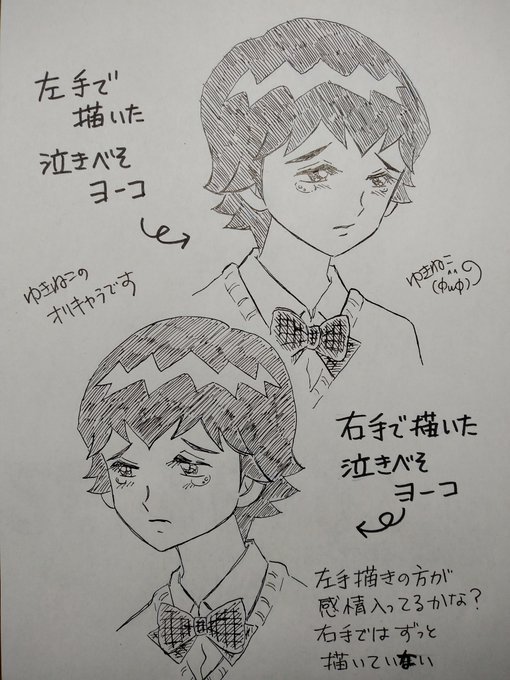 左手で
描いた
泣きべそ
ヨーコ
ゆきねこの
オリキャラです
ゆきねこ
(ΦωΦ)
右手で描いた
泣きべそ
ヨーコ
左手描きの方が
感情入ってるかな?
右手ではずっと
描いていない